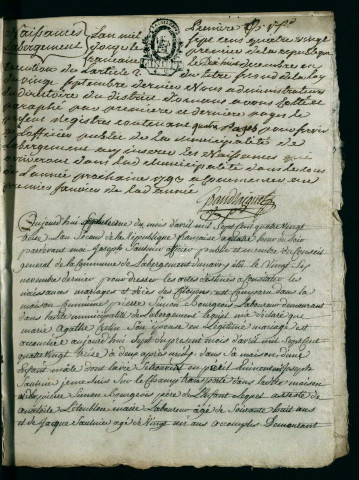 Naissances L'an mil
Labergement
sept cens quatre vingt
douze le
première de la republique
francaise
le dix huit decembre en
execution de l'article 2 du titre second de la Loy
du vingt septembre dernier Nous administrateurs
du directoire du district d'ornans avons cotté et
paraphé par premiere et derniere page le
present Registre contenant quatre pages pour servir
a l'officier public de la municipalité de
Labergement aux inscrire les Naissances qui
arriveront dans lad. municipalité dans le cours
de l'année prochaine 1793 a commencer au
premier janvier de lad. année
Aujourd'hui septieme du mois d'avril mil sept cent quatre vingt
treize l'an second de la République française a quatre heure du soir
pardevant moi Joseph Saulnier officier public et membre du conseil
general de la Commune de Labergement élu le vingt six
novembre dernier pour dresser les actes destinés a constater les
naissances mariages et décès des citoyens est comparu dans la
maison commune pierre Simon Bourgeois Laboureur demeurant
dans ladite municipalité de Labergement lequel m'a déclaré que
marie Agathe son Epouse en Légitime mariage est
accouchée aujourd'hui sept du present mois d'avril mil sept cent
quatre vingt treize a deux apres midy dans sa maison d'une
enfant
Saulnier je me suis sur le champ transporté dans ladite maison
de pierre Simon Bourgeois père de l'enfant
Laboureur âgé de soixante huit ans
et de Jacque Saulnier agé de vingt ans accomplis Demeurant